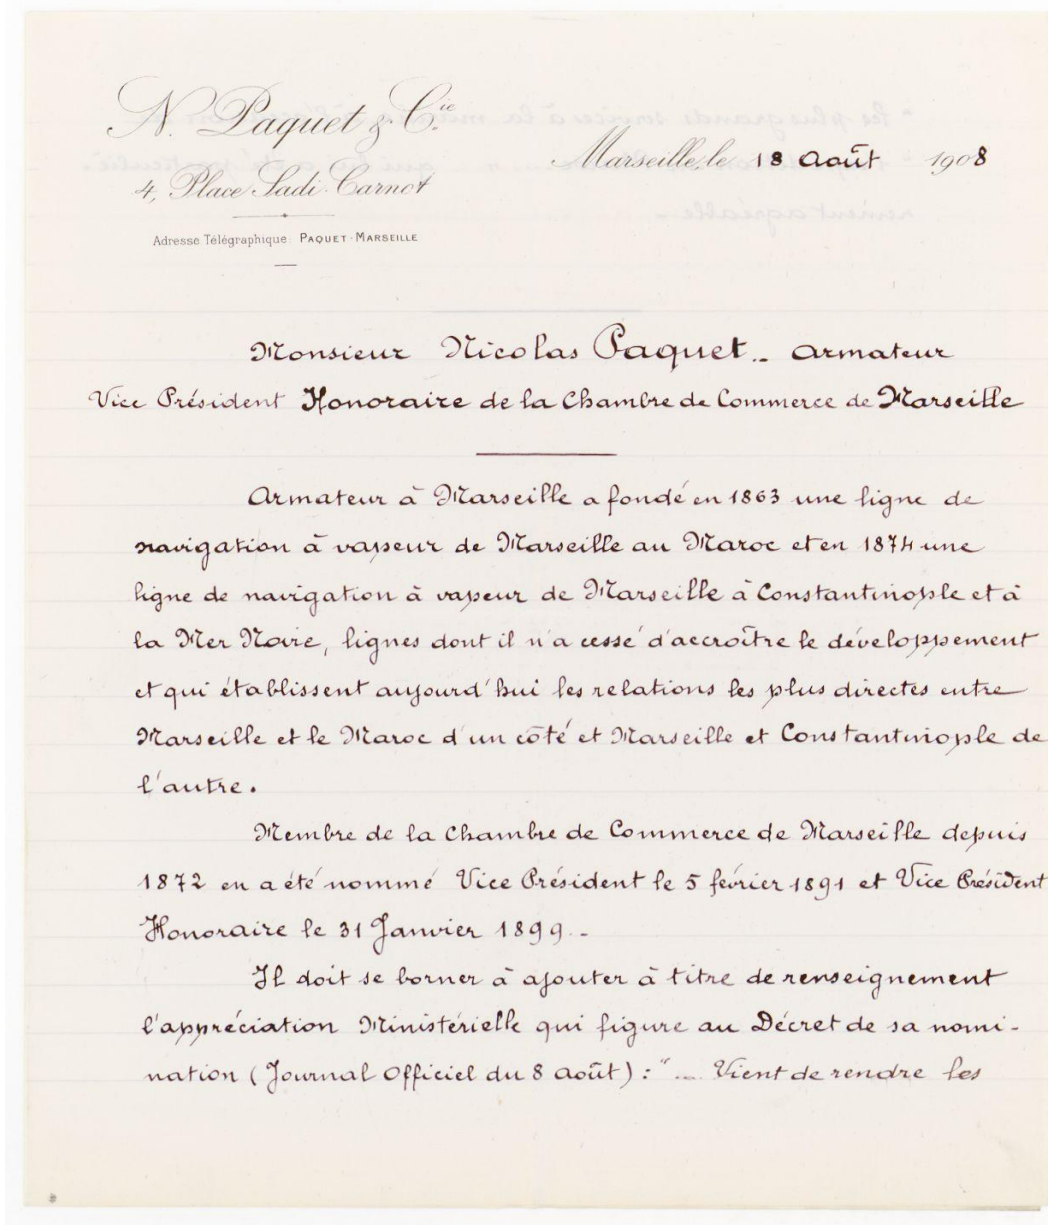 N. Paquet & Cie.
4, Place Sadi-Carnot
Adresse Télégraphique: PAQUET-MARSEILLE
Marseille, le 18 Août 1908
Monsieur Nicolas Paquet.. Armateur
Vice Président Honoraire de la Chambre de Commerce de Marseille
Armateur à Marseille a fondé en 1863 une ligne de
navigation à vapeur de Marseille au Maroc et en 1874 une
ligne de navigation à vapeur de Marseille à Constantinople et à
la Mer Noire, lignes dont il n'a cessé d'accroître le développement
et qui établissent aujourd'hui les relations les plus directes entre
Marseille et le Maroc d'un côté et Marseille et Constantinople de
l'autre.
Membre de la Chambre de Commerce de Marseille depuis
1872 en a été nommé Vice Président le 5 février 1891 et Vice Président
Honoraire le 31 Janvier 1899.-
Il doit se borner à ajouter à titre de renseignement
l'appréciation Ministérielle qui figure au Décret de sa nomi-
nation (Journal Officiel du 8 Août) : "... Vient de rendre les